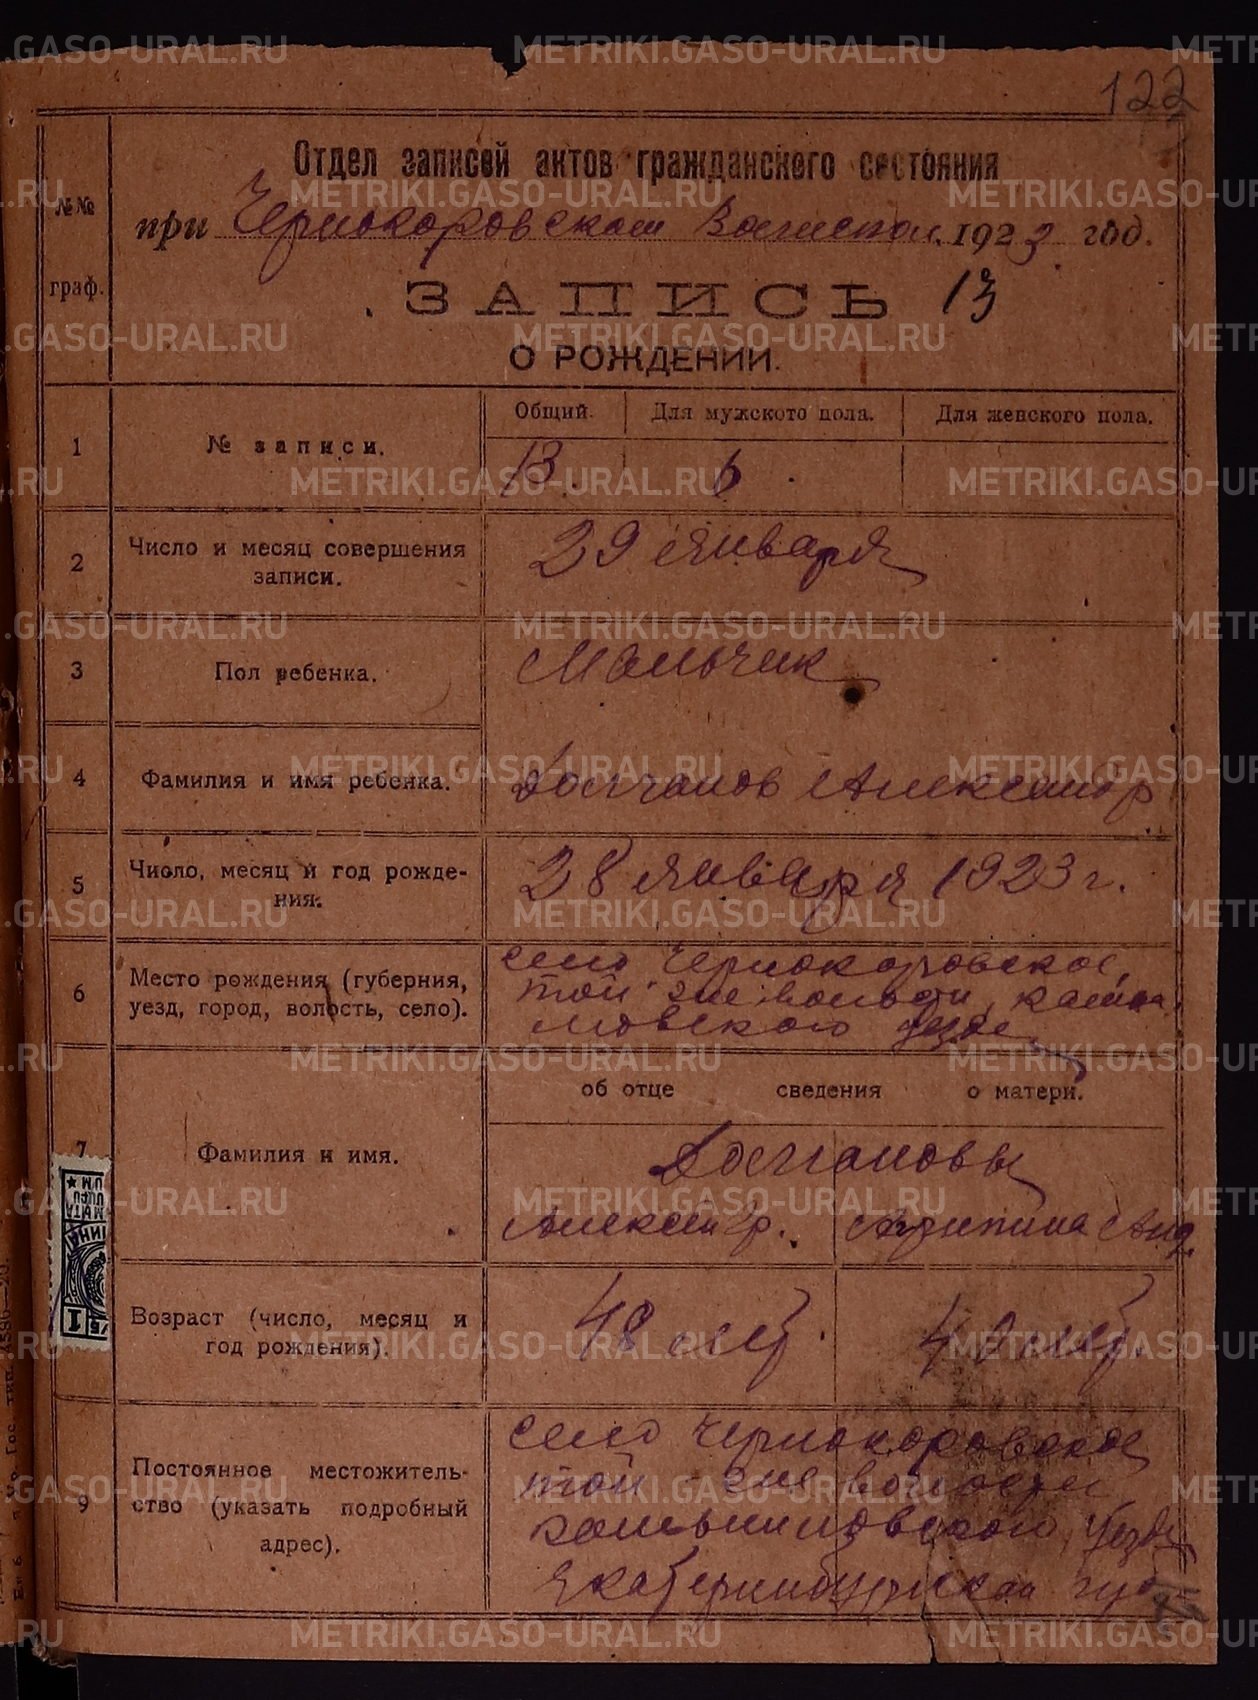 122
Отдел записей актов гражданского состояния
№№ граф.
при Чернокоровском Волиспол. 1923 год.
ЗАПИСЬ 13
О РОЖДЕНИИ.
1 № записи. Общий. Для мужского пола. Для женского пола.
13. 6
2 Число и месяц совершения записи. 29 января
3 Пол ребенка. Мальчик
4 Фамилия и имя ребенка. Долганов Александр
5 Число, месяц и год рождения. 28 января 1923 г.
6 Место рождения (губерния, уезд, город, волость, село). село Чернокоровское,
той-же волости, камыш
ловского уезда
об отце сведения о матери.
7 Фамилия и имя. Долгановы
Александр. Агрипина Анд.
Возраст (число, месяц и год рождения). 48 лет. 40 лет.
9 Постоянное местожительство (указать подробный адрес). село Чернокоровское
той-же волости
камышловского уезда
Екатеринбургской губ
METRIKI.GASO-URAL.RU